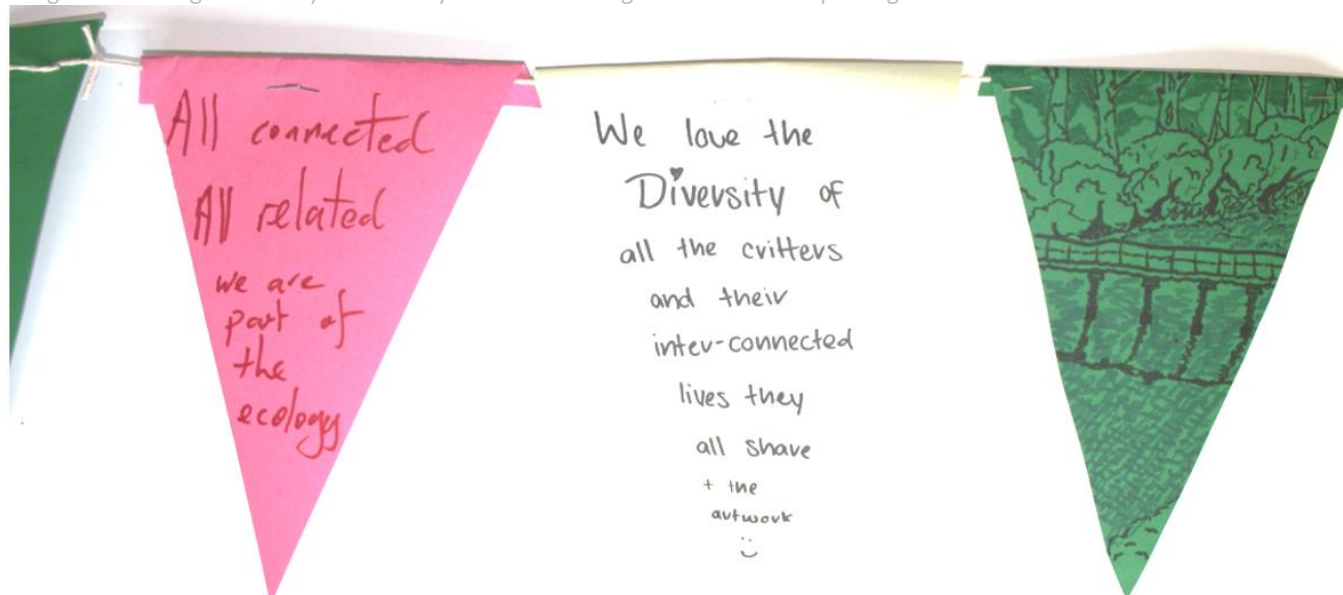 All connected
All related
we are
part of
the
ecology
We love the
Diversity of
all the critters
and their
inter-connected
lives they
all share
+ the
artwork
:)